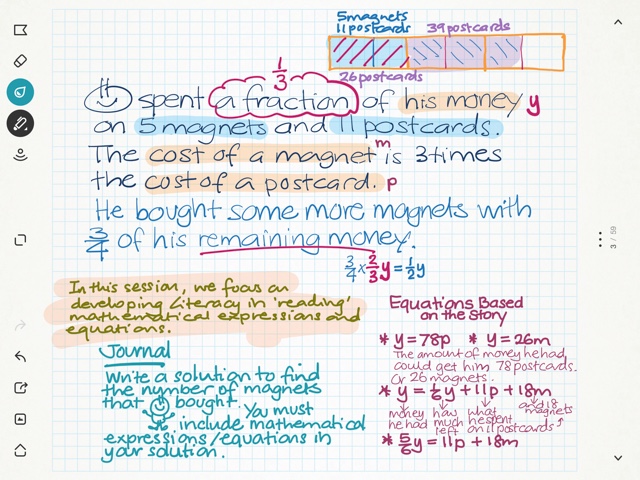 5 magnets
11 postcards
39 postcards
26 postcards
1/3
spent a fraction of his money y
on 5 magnets and 11 postcards.
The cost of a magnet m is 3 times
the cost of a postcard. p
He bought some more magnets with
3/4 of his remaining money.
3/4 x 2/3 y = 1/2 y
In this session, we focus on
developing Literacy in 'reading'
mathematical expressions and
equations.
Journal
Write a solution to find
the number of magnets
that bought. You must
include mathematical
expressions/equations in
your solution.
Equations Based
on the Story
* y = 78p * y = 26m
The amount of money he had
could get him 78 postcards.
Or 26 magnets.
* y = 1/6 y + 11p + 18m
money he had
how much left
what he spent on 11 postcards
and 18 magnets
* 5/6 y = 11p + 18m
3 / 59